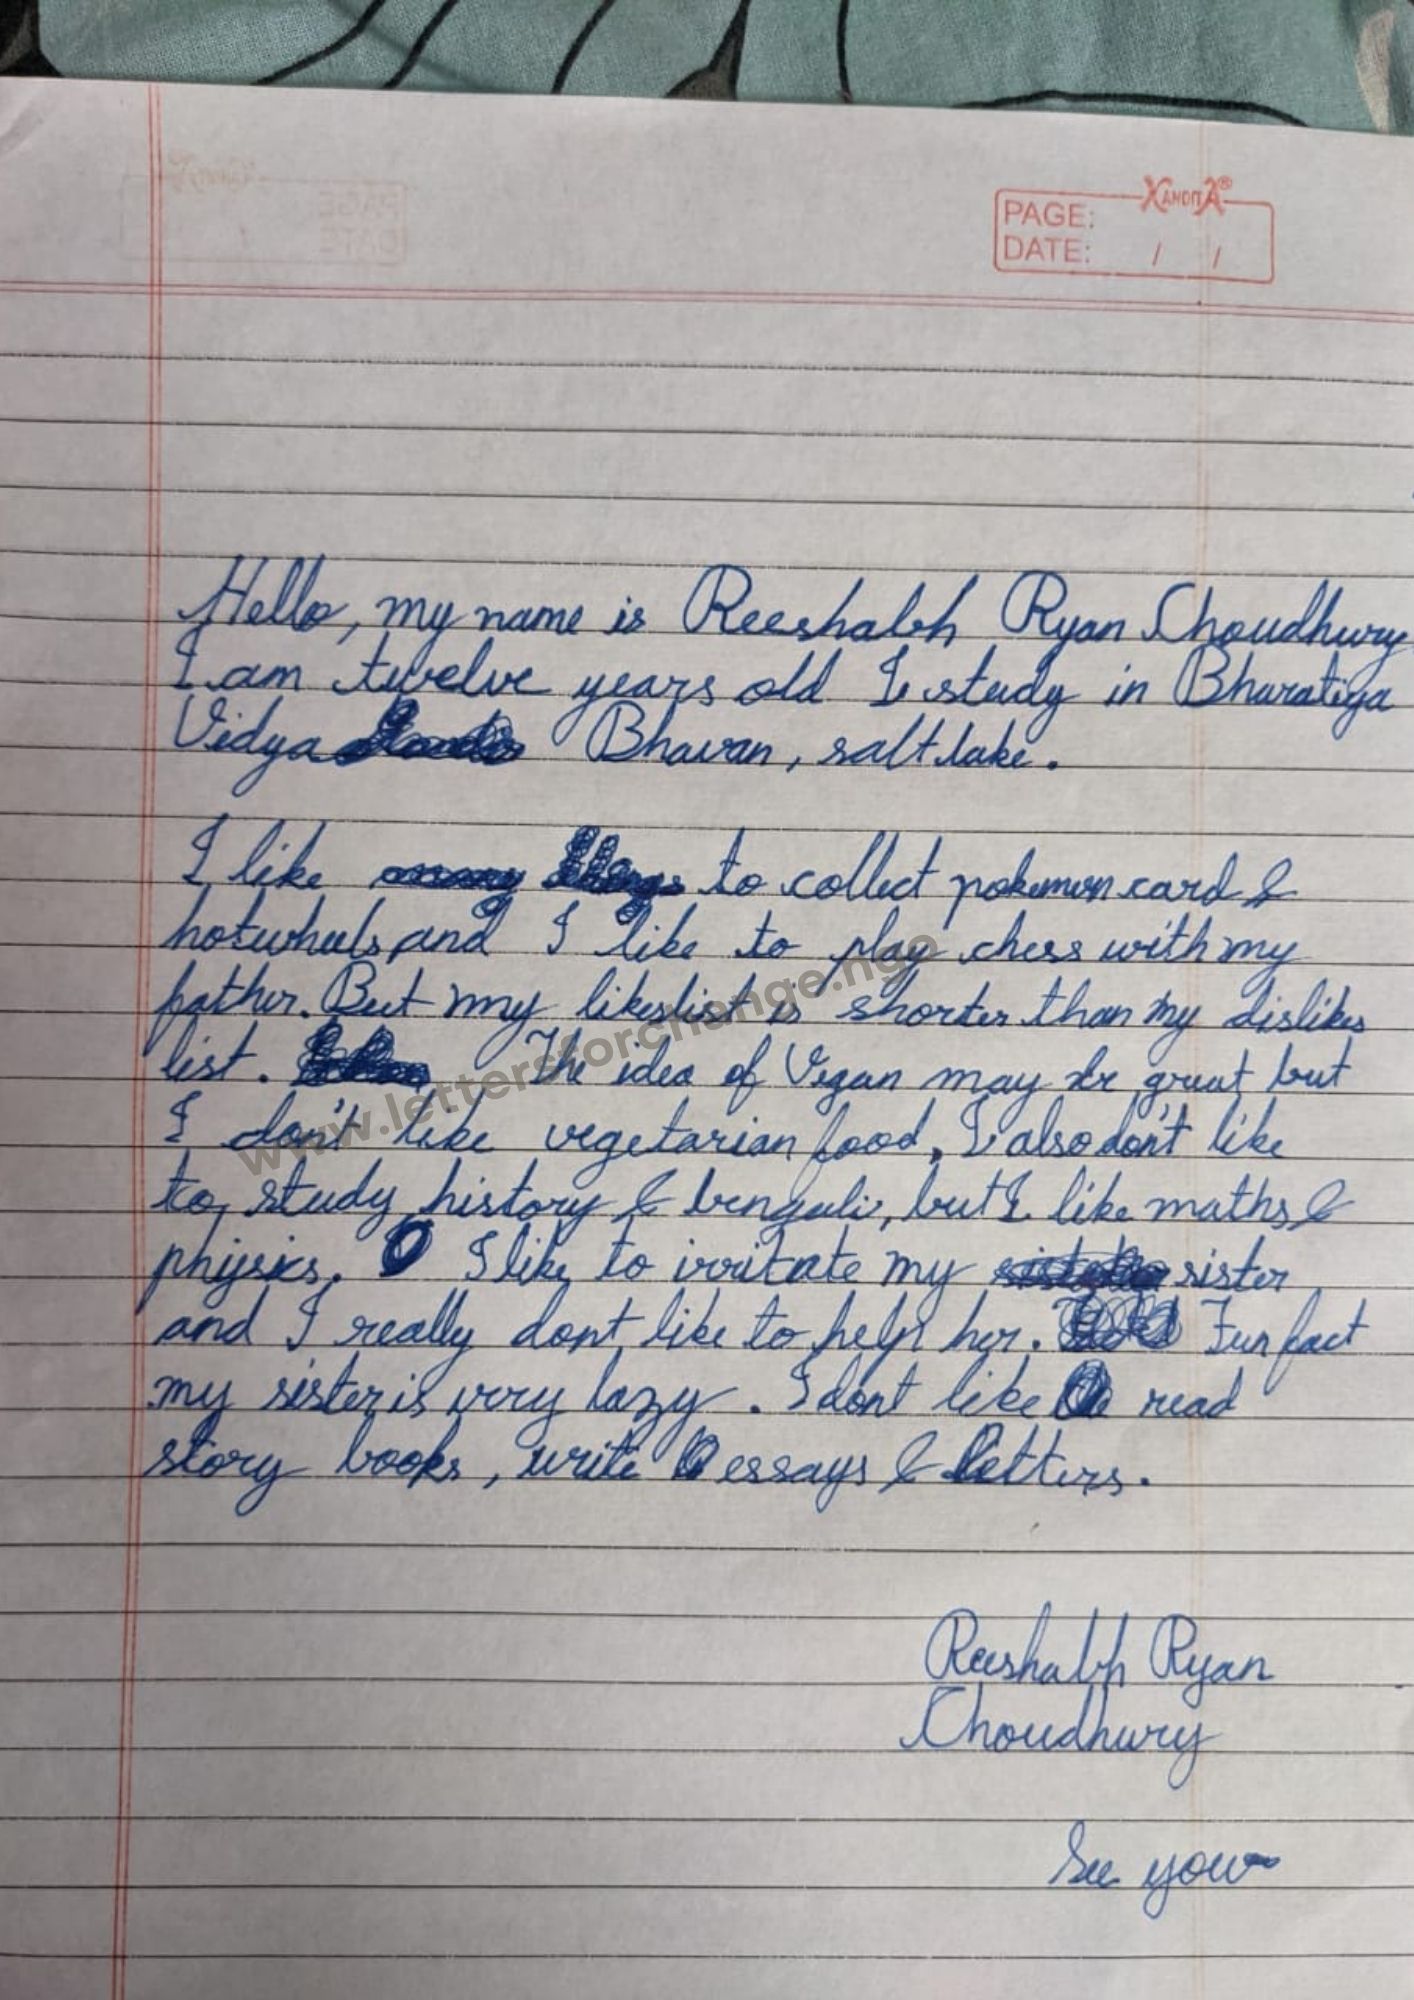 XANDITA®
PAGE:
DATE: / /
Hello, my name is Reeshabh Ryan Choudhury
I am twelve years old I study in Bharatiya
Vidya Bhavan, salt lake.
I like many things to collect pokemon card &
hotwheels and I like to play chess with my
father. But my likes list is shorter than my dislikes
list. The idea of Vegan may be great but
I don't like vegetarian food, I also don't like
to study history & bengali, but I like maths &
physics. I like to irritate my sister
and I really dont like to help her. Fun fact
my sister is very lazy. I dont like read
story books, write essays & letters.
Reeshabh Ryan
Choudhury
See you
www.lettersforchange.ngo